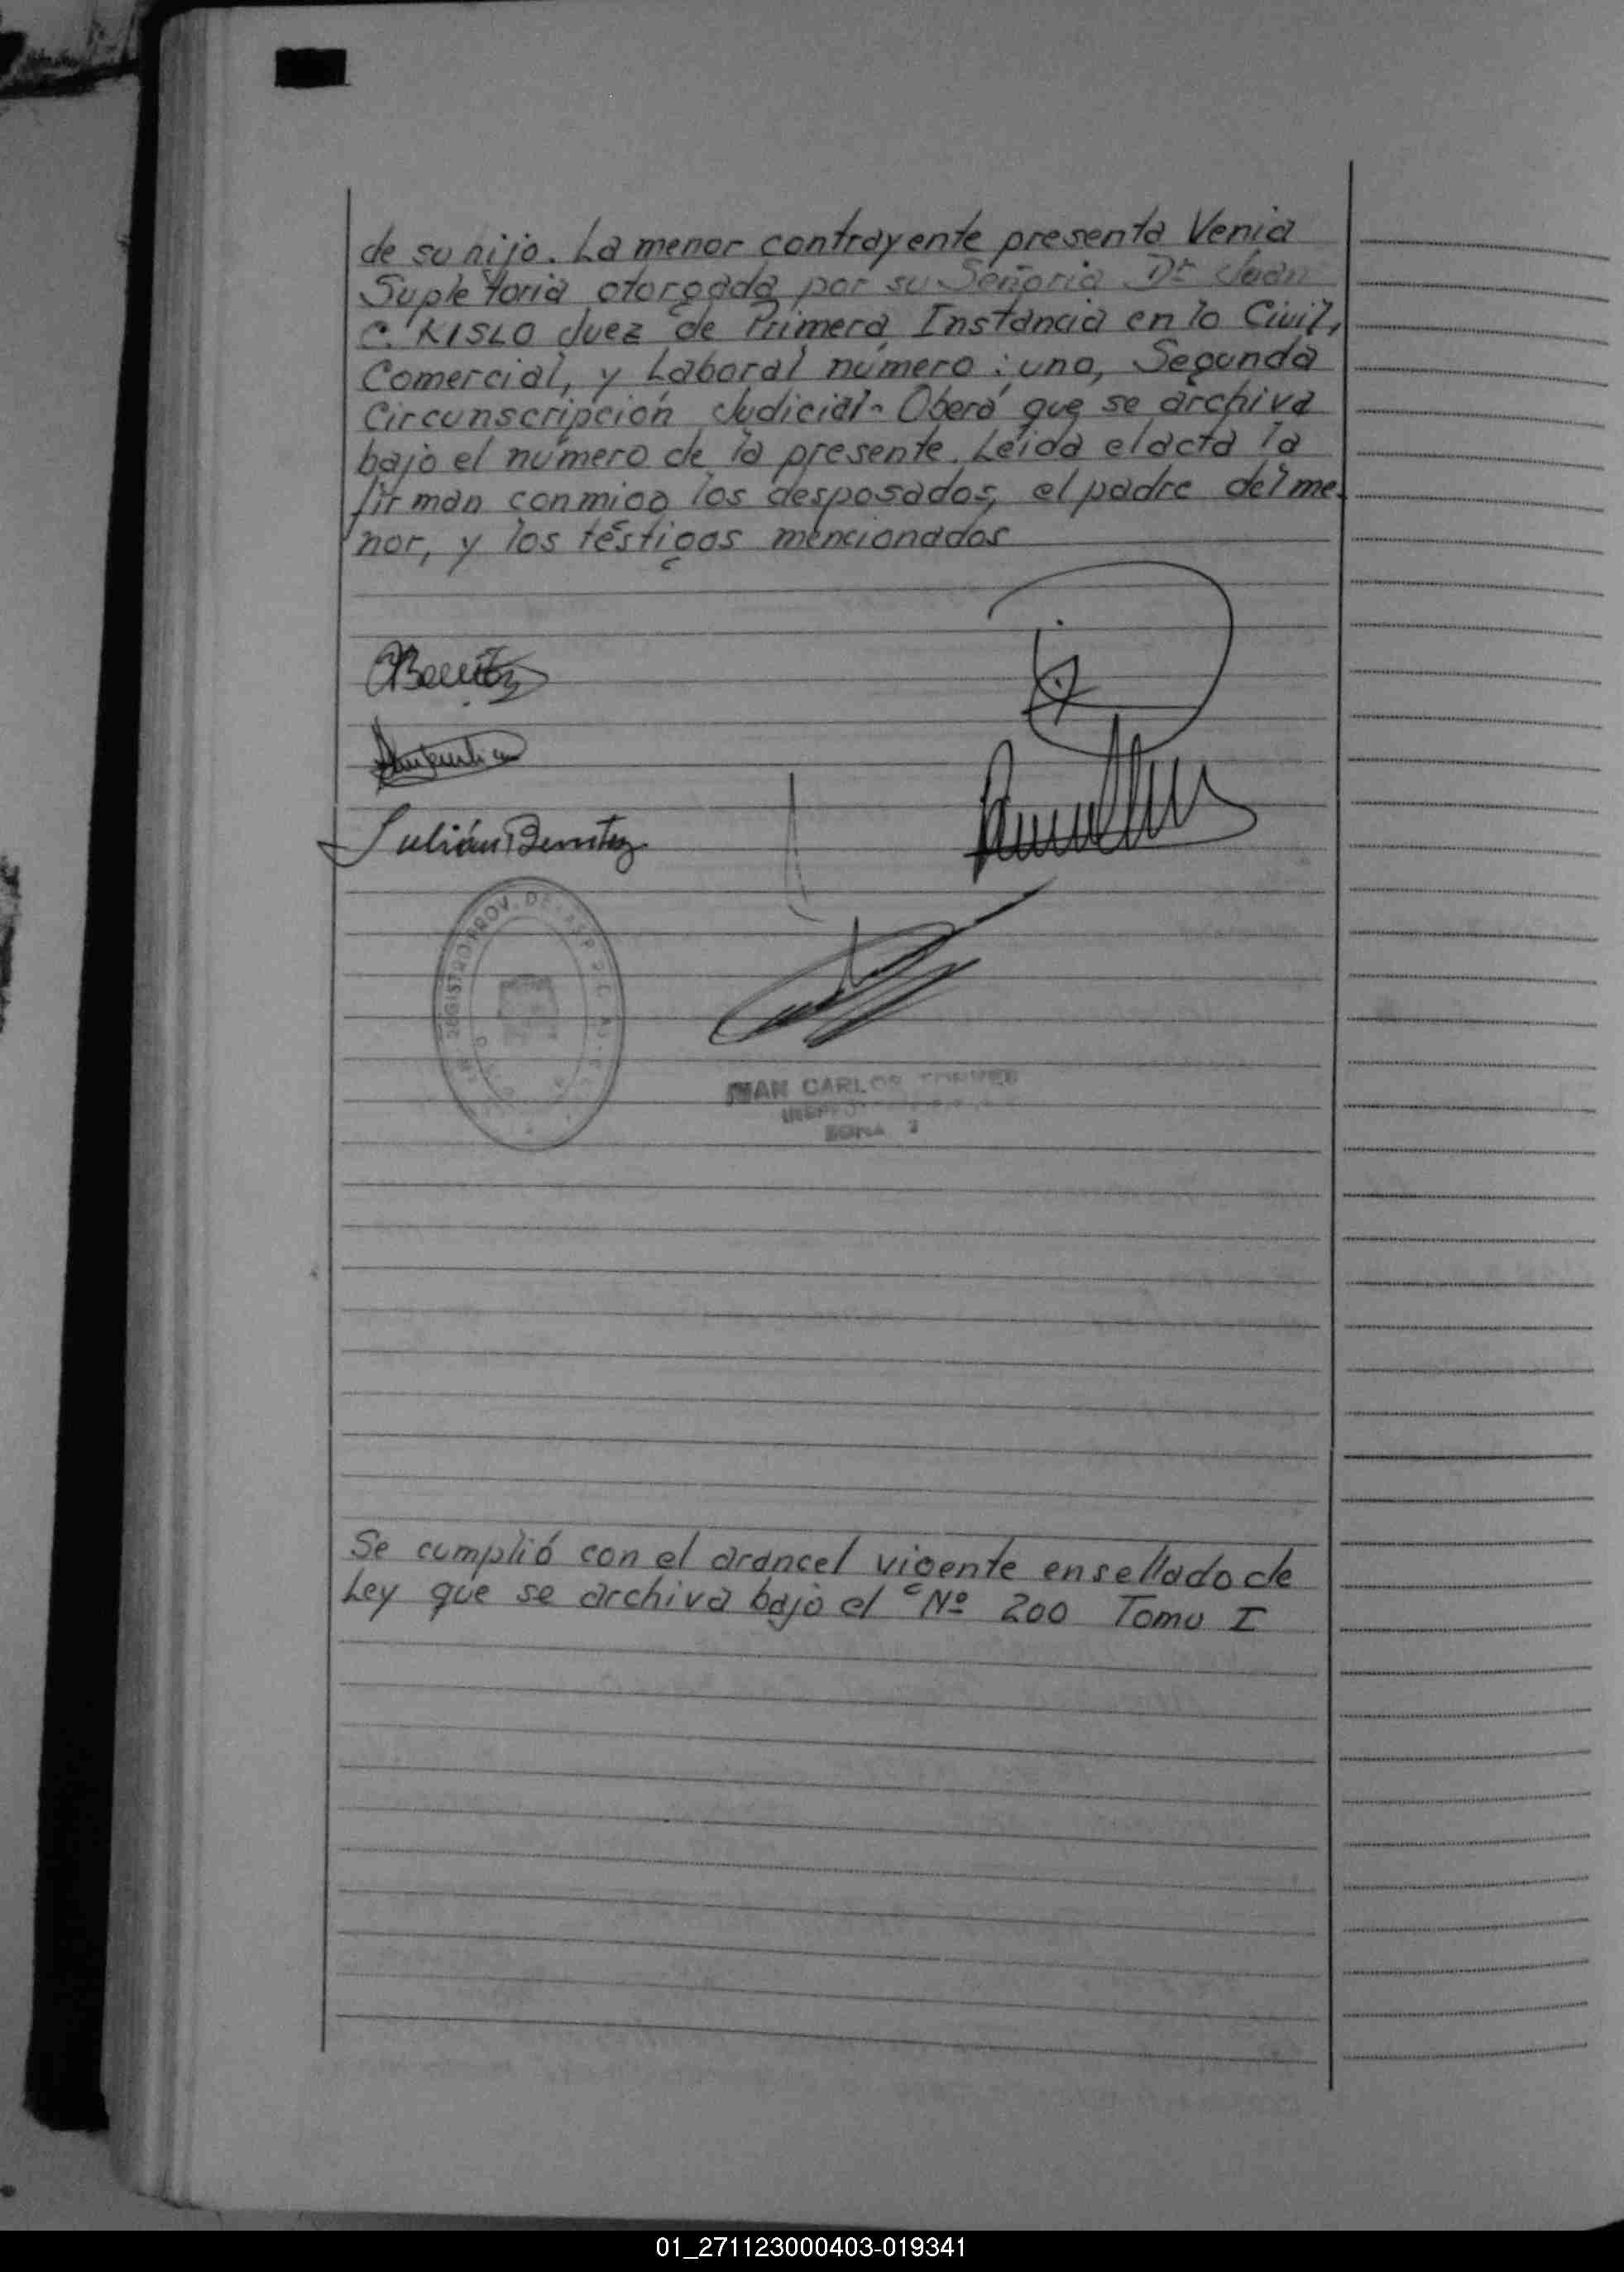 de su hijo. La menor contrayente presenta Venia
Supletoria otorgada por su Señoria Dr Juan
C. KISLO Juez de Primera Instancia en lo Civil,
Comercial, y Laboral número: uno, Segunda
Circunscripción Judicial- Oberá que se archiva
bajo el número de la presente. Leída el acta la
firman conmigo los desposados, el padre del me-
nor, y los testigos mencionados
Benitez
Julián Benitez
REGISTRO PROV. DE LAS
JUAN CARLOS
ZONA
Se cumplió con el arancel vigente en sellado de
Ley que se archiva bajo el Nº 200 Tomo I
01_271123000403-019341